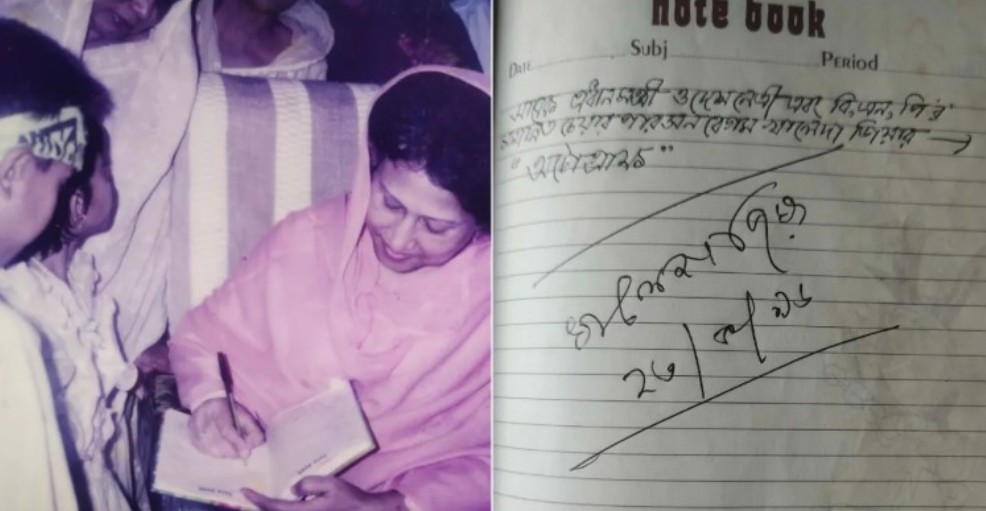 note book
Date Subj Period
সাবেক প্রধানমন্ত্রী ও দেশনেত্রী এবং বি,এন,পি'র
চেয়ারপারসন বেগম খালেদা জিয়ার →
"অটোগ্রাফ"
খালেদা জিয়া